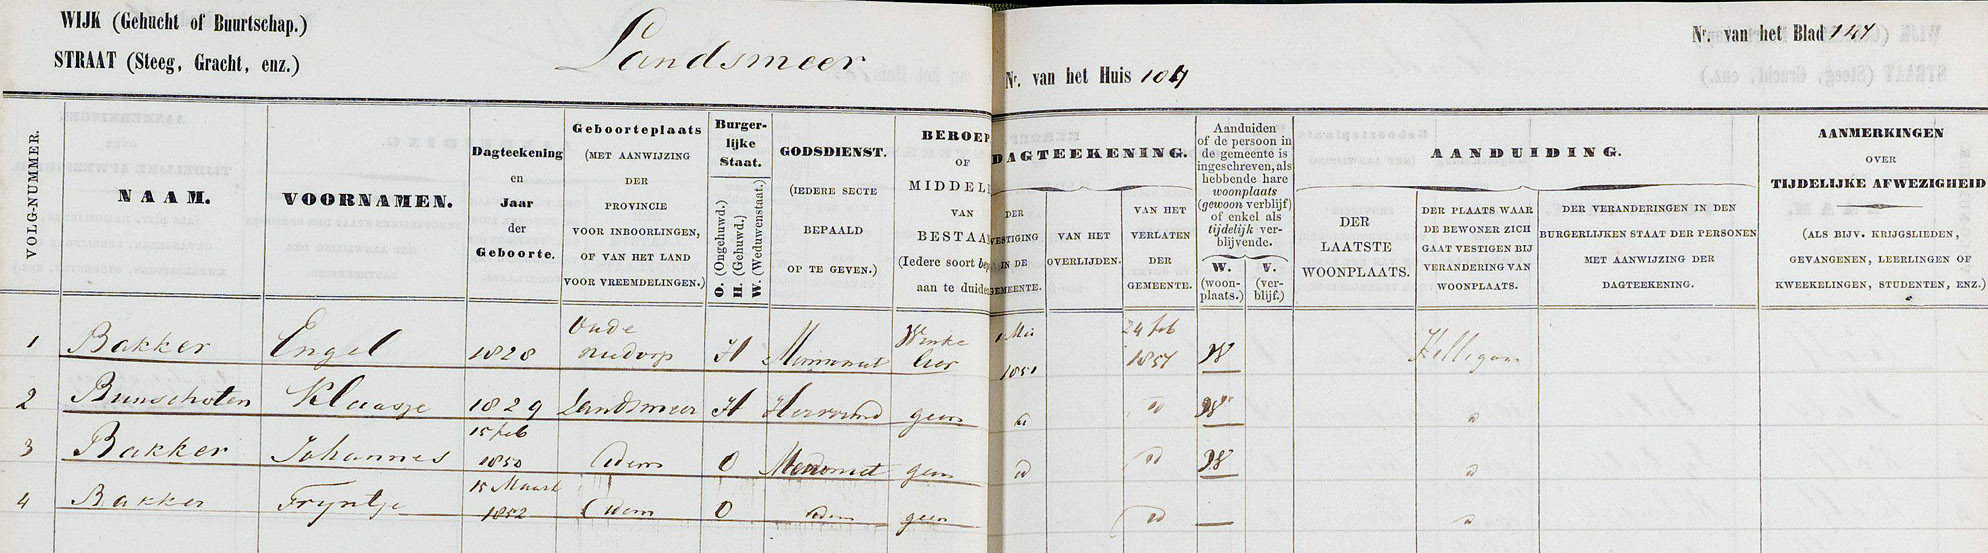 WIJK (Gehucht of Buurtschap.)
STRAAT (Steeg, Gracht, enz.)
Landsmeer
Nr. van het Huis 104
Nr. van het Blad 147
VOLG-NUMMER.
NAAM.
VOORNAMEN.
Dagteekening
en
Jaar
der
Geboorte.
Geboorteplaats
(MET AANWIJZING
DER
PROVINCIE
VOOR INBOORLINGEN,
OF VAN HET LAND
VOOR VREEMDELINGEN.)
Burger-
lijke
Staat.
O. (Ongehuwd.)
H. (Gehuwd.)
W. (Weduwenstaat.)
GODSDIENST.
(IEDERE SECTE
BEPAALD
OP TE GEVEN.)
BEROEP
OF
MIDDEL
VAN
BESTAA
(Iedere soort bep
aan te duide
DAGTEEKENING.
DER
VESTIGING
IN DE
GEMEENTE.
VAN HET
OVERLIJDEN.
VAN HET
VERLATEN
DER
GEMEENTE.
Aanduiden
of de persoon in
de gemeente is
ingeschreven, als
hebbende hare
woonplaats
(gewoon verblijf)
of enkel als
tijdelijk ver-
blijvende.
W.
(woon-
plaats.)
V.
(ver-
blijf.)
AANDUIDING.
DER
LAATSTE
WOONPLAATS.
DER PLAATS WAAR
DE BEWONER ZICH
GAAT VESTIGEN BIJ
VERANDERING VAN
WOONPLAATS.
DER VERANDERINGEN IN DEN
BURGERLIJKEN STAAT DER PERSONEN
MET AANWIJZING DER
DAGTEEKENING.
AANMERKINGEN
OVER
TIJDELIJKE AFWEZIGHEID
(ALS BIJV. KRIJGSLIEDEN,
GEVANGENEN, LEERLINGEN OF
KWEEKELINGEN, STUDENTEN, ENZ.)
1 Bakker Engel 1828 Oude Niedorp H Mennoniet Winkelier 1 Mei 1851 24 feb 1857 W
2 Bunschoten Klaasje 1829 Landsmeer H Hervormd geen id id W id
3 Bakker Johannes 15 feb 1850 idem O Mennoniet geen id id W id
4 Bakker Tryntje 15 Maart 1852 idem O idem geen id id